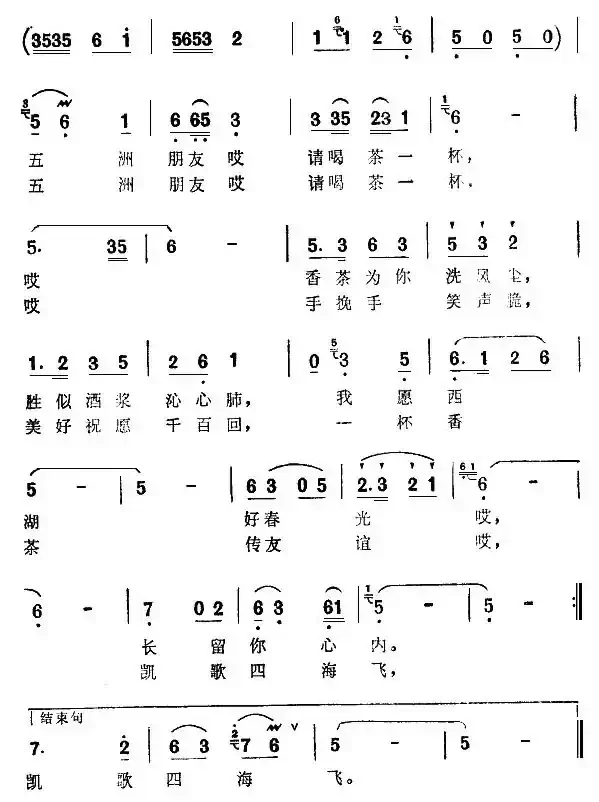 (3535 6 i | 5653 2 | 1 6 1 2 1 6 | 5 0 5 0) |
3 5 6 1 | 6 65 3 | 3 35 23 1 | 1 6 - |
五 洲 朋友哎 请喝茶一杯,
五 洲 朋友哎 请喝茶一杯.
5. 35 | 6 - | 5. 3 6 3 | 5 3 2 |
哎 香茶为你 洗风尘,
哎 手挽手 笑声脆,
1. 2 3 5 | 2 6 1 | 0 5 3 5 | 6. 1 2 6 |
胜似酒浆 沁心肺, 我愿西
美好祝愿 千百回, 一杯香
5 - | 5 - | 6 3 0 5 | 2. 3 2 1 | 61 6 - |
湖 好春光 哎,
茶 传友谊 哎,
6 - | 7 0 2 | 6 3 61 | 1 5 - | 5 - :||
长留你心内。
凯歌四海飞,
结束句
7. 2 | 6 3 2 7 6 ∨ | 5 - | 5 - ||
凯歌四海飞。